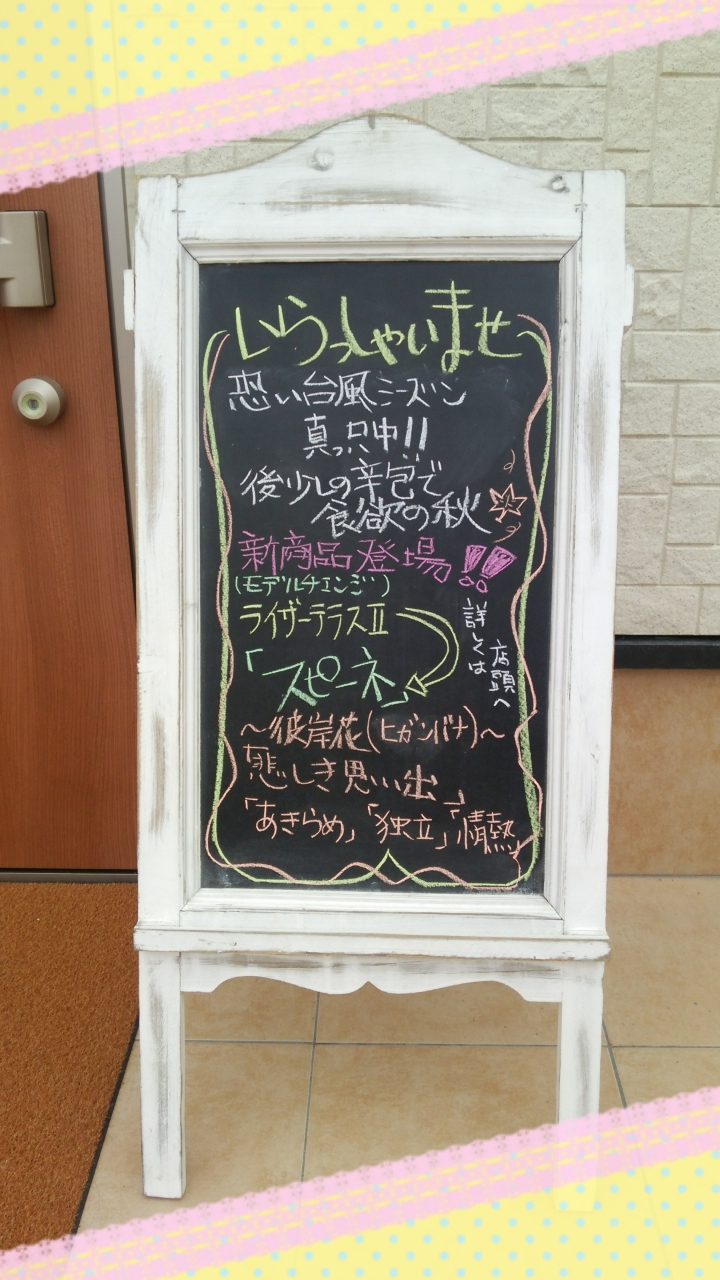 いらっしゃいませ
恐い台風シーズン
真っ只中!!
後少しの辛包で
食欲の秋
新商品登場!!
(モデルチェンジ)
ライザーテラスII
「スピーネ」
詳しくは
店頭へ
～彼岸花(ヒガンバナ)～
悲しき思い出
「あきらめ」「独立」「情熱」